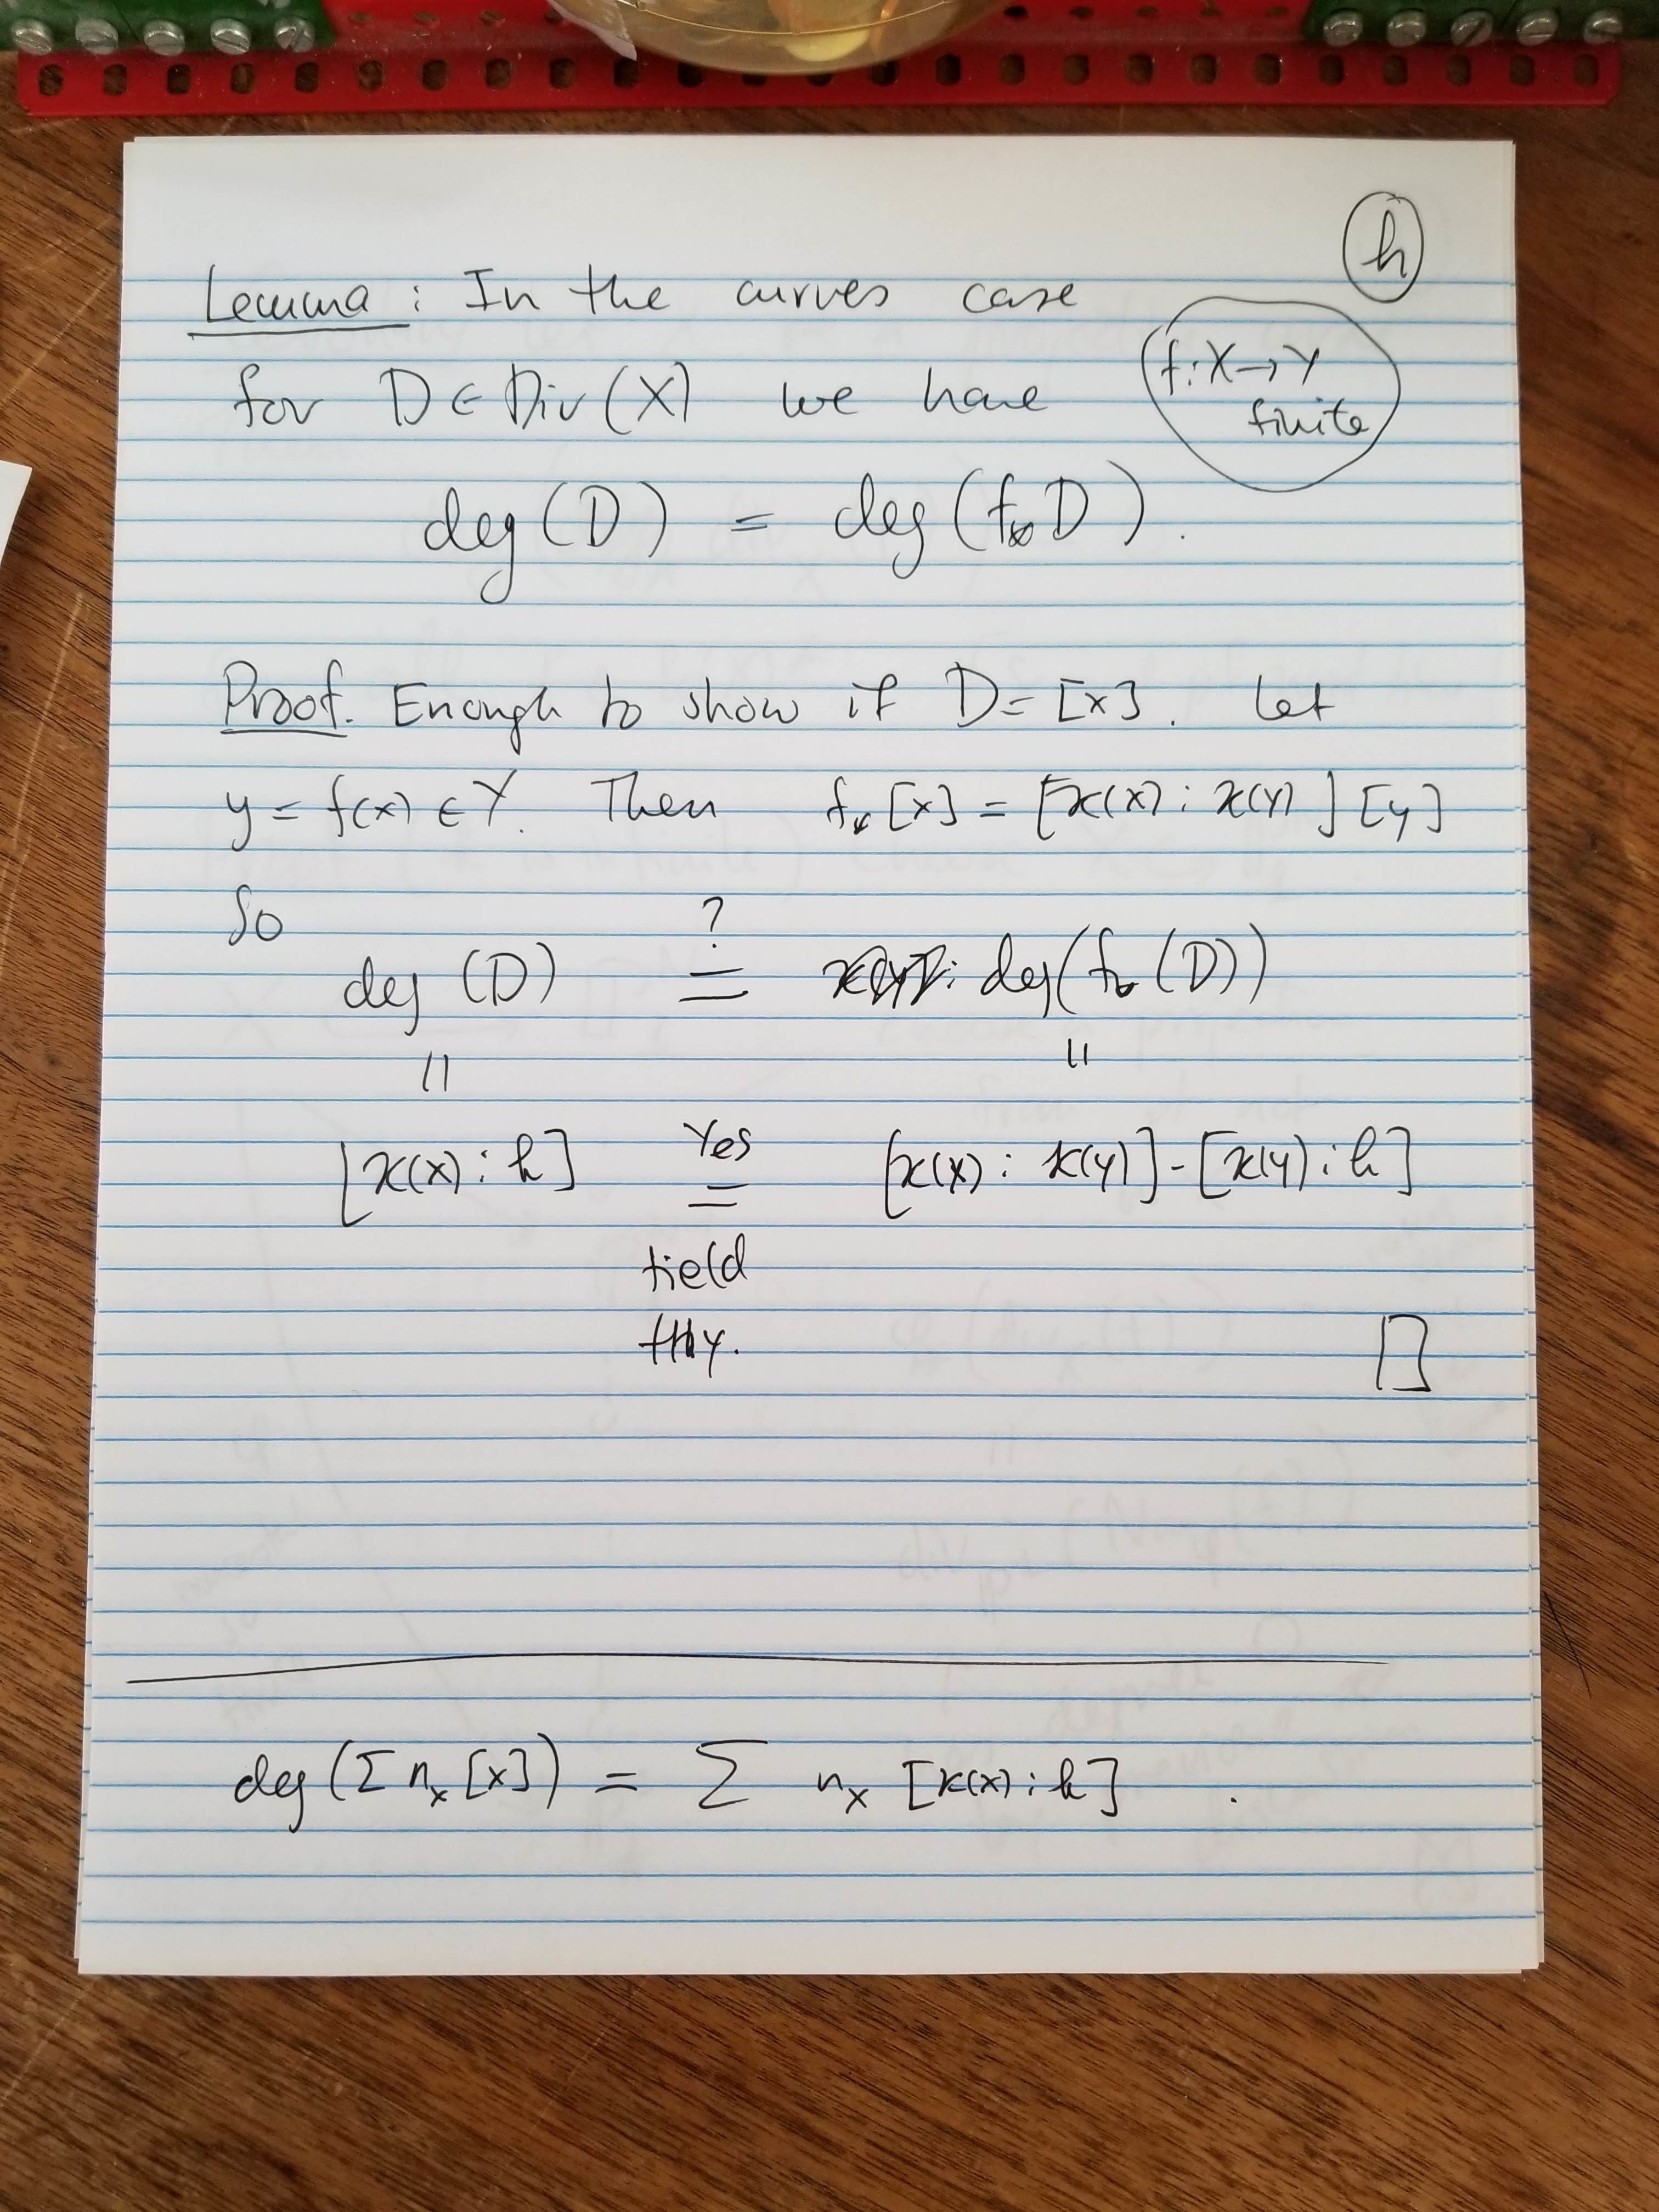 h
Lemma : In the curves case
f: X → Y
finite
for D ∈ Div(X) we have
deg(D) = deg(f_* D).
Proof. Enough to show if D = [x]. Let
y = f(x) ∈ Y. Then f_*[x] = [κ(x) : κ(y)][y]
So
?
deg (D) = deg(f_*(D))
|| ||
[κ(x) : k] Yes = [κ(x) : κ(y)]·[κ(y) : k]
field
thy.
□
deg(Σ n_x [x]) = Σ n_x [κ(x) : k] .